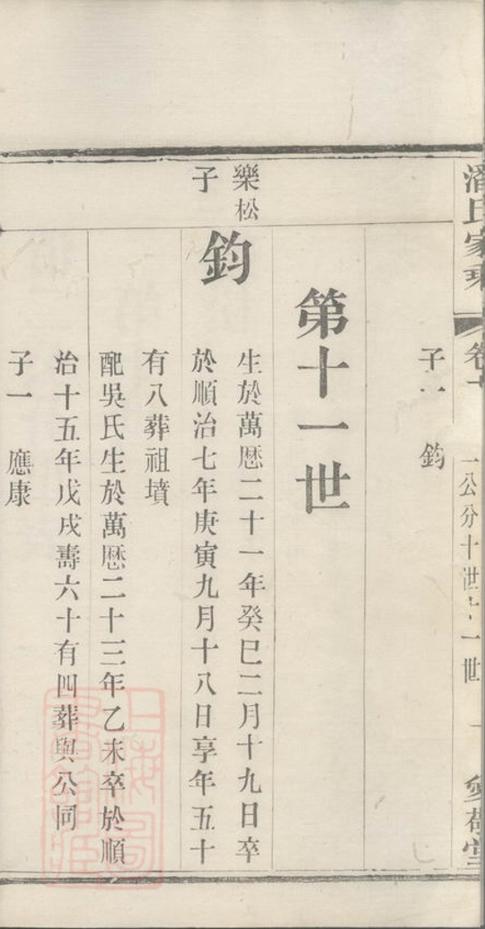 潘氏家乘
卷十
一公分十世十一世
愛敬堂
子一 鈞
第十一世
樂松
子
鈞
生於萬曆二十一年癸巳二月十九日卒
於順治七年庚寅九月十八日享年五十
有八葬祖墳
配吳氏生於萬曆二十三年乙未卒於順
治十五年戊戌壽六十有四葬與公同
子一 應康